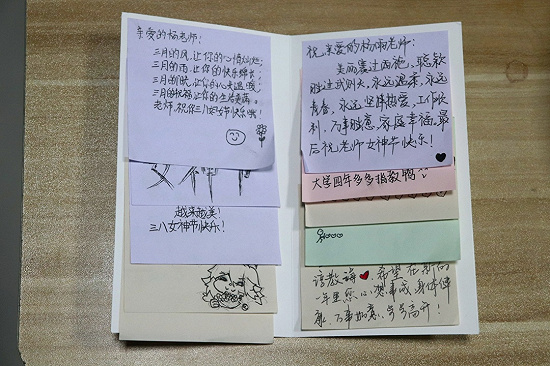 亲爱的杨老师：
三月的风，让你的心情灿烂；
三月的雨，让你的快乐绵长；
三月的阳，让你的心灵温暖；
三月的祝福，让你的生活美满。
老师，祝你三八女神节快乐哦！
女神节
越来越美！
三八女神节快乐！
祝亲爱的杨雨老师：
美丽赛过西施，聪敏
胜过武则天，永远温柔，永远
青春，永远坚强热爱，工作顺
利，万事胜意，家庭幸福。最
后祝老师女神节快乐！
大学四年多多指教鸭
谆教诲 希望在新的
一年里您心想事成，身体健
康，万事如意，步步高升！